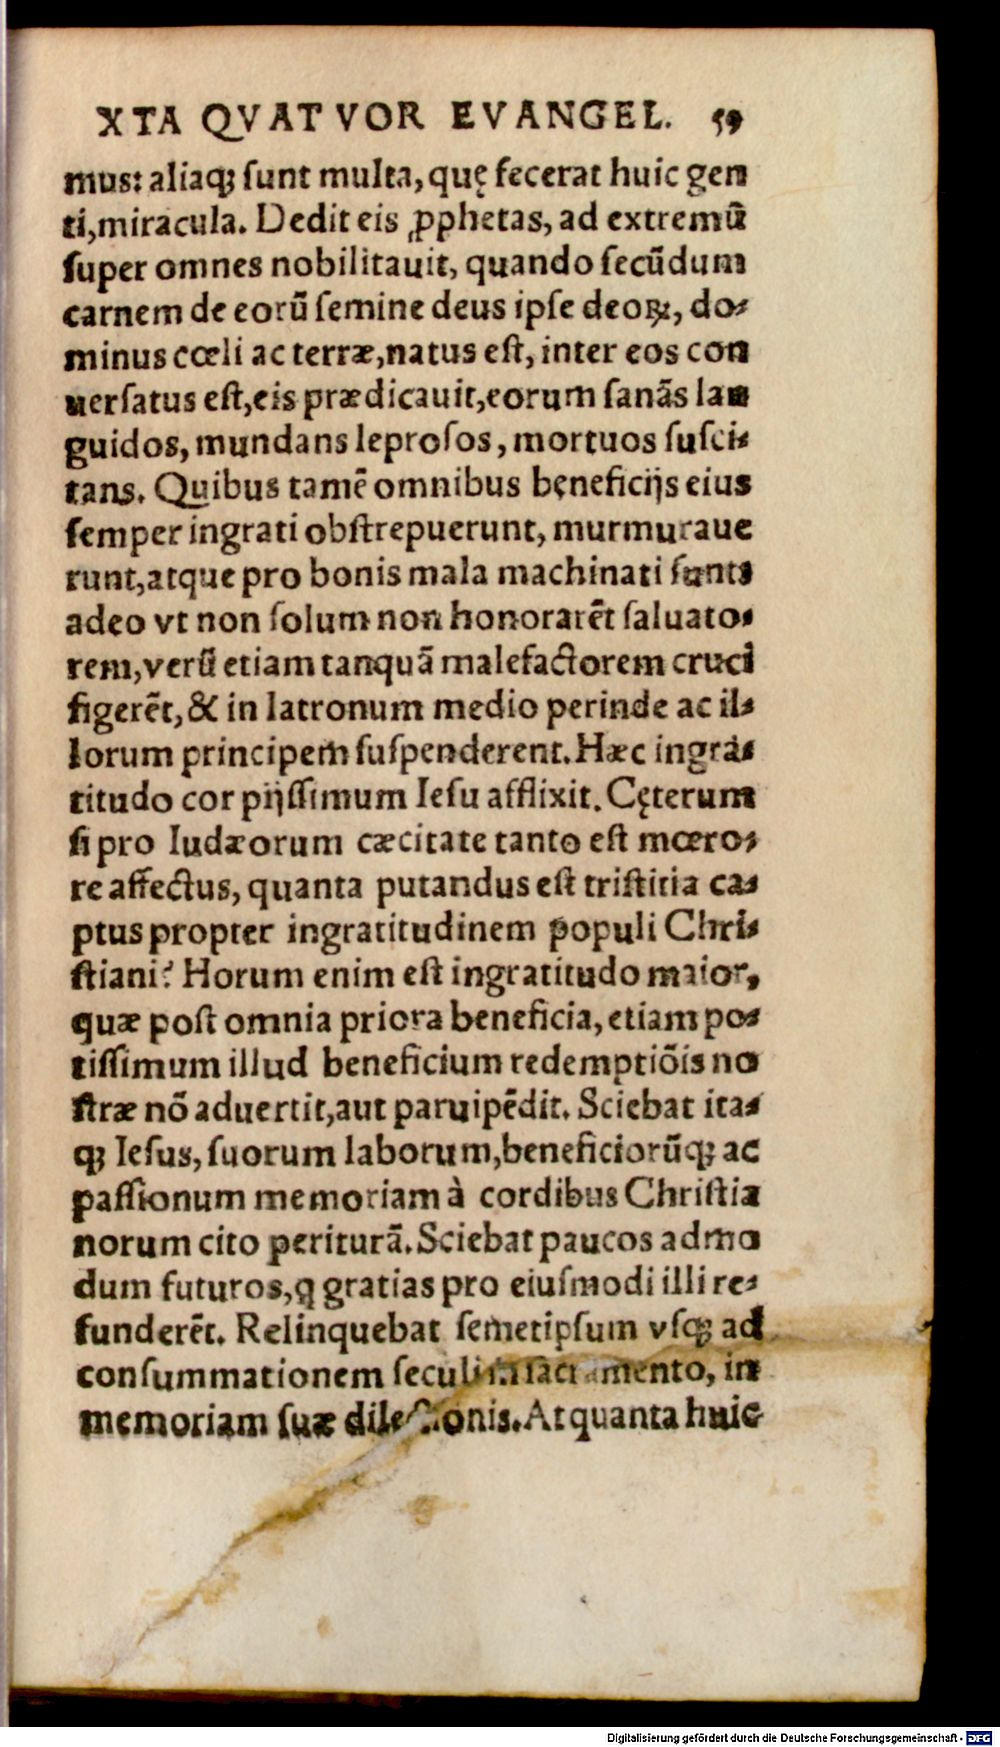 XTA QVATVOR EVANGEL. 59
mus: aliaq; sunt multa, quę fecerat huic gen
ti, miracula. Dedit eis ꝓphetas, ad extremũ
super omnes nobilitauit, quando secũdum
carnem de eorũ semine deus ipse deoꝝ, do-
minus cœli ac terræ, natus est, inter eos con
uersatus est, eis prædicauit, eorum sanãs lan
guidos, mundans leprosos, mortuos susci-
tans. Quibus tamẽ omnibus bęneficijs eius
semper ingrati obstrepuerunt, murmuraue
runt, atque pro bonis mala machinati sunt:
adeo vt non solum non honorarẽt saluato-
rem, verũ etiam tanquã malefactorem cruci
figerẽt, & in latronum medio perinde ac il-
lorum principem suspenderent. Hæc ingra-
titudo cor pijssimum Iesu afflixit. Cęterum
si pro Iudæorum cæcitate tanto est mœro-
re affectus, quanta putandus est tristitia ca-
ptus propter ingratitudinem populi Chri-
stiani? Horum enim est ingratitudo maior,
quæ post omnia priora beneficia, etiam po-
tissimum illud beneficium redemptiõis no
stræ nõ aduertit, aut paruipẽdit. Sciebat ita-
q; Iesus, suorum laborum, beneficiorũq; ac
passionum memoriam à cordibus Christia
norum cito periturã. Sciebat paucos admo
dum futuros, q̃ gratias pro eiusmodi illi re-
funderẽt. Relinquebat semetipsum vsq; ad
consummationem seculi in sacramento, in
memoriam suæ dilectionis. At quanta huic
Digitalisierung gefördert durch die Deutsche Forschungsgemeinschaft - DFG